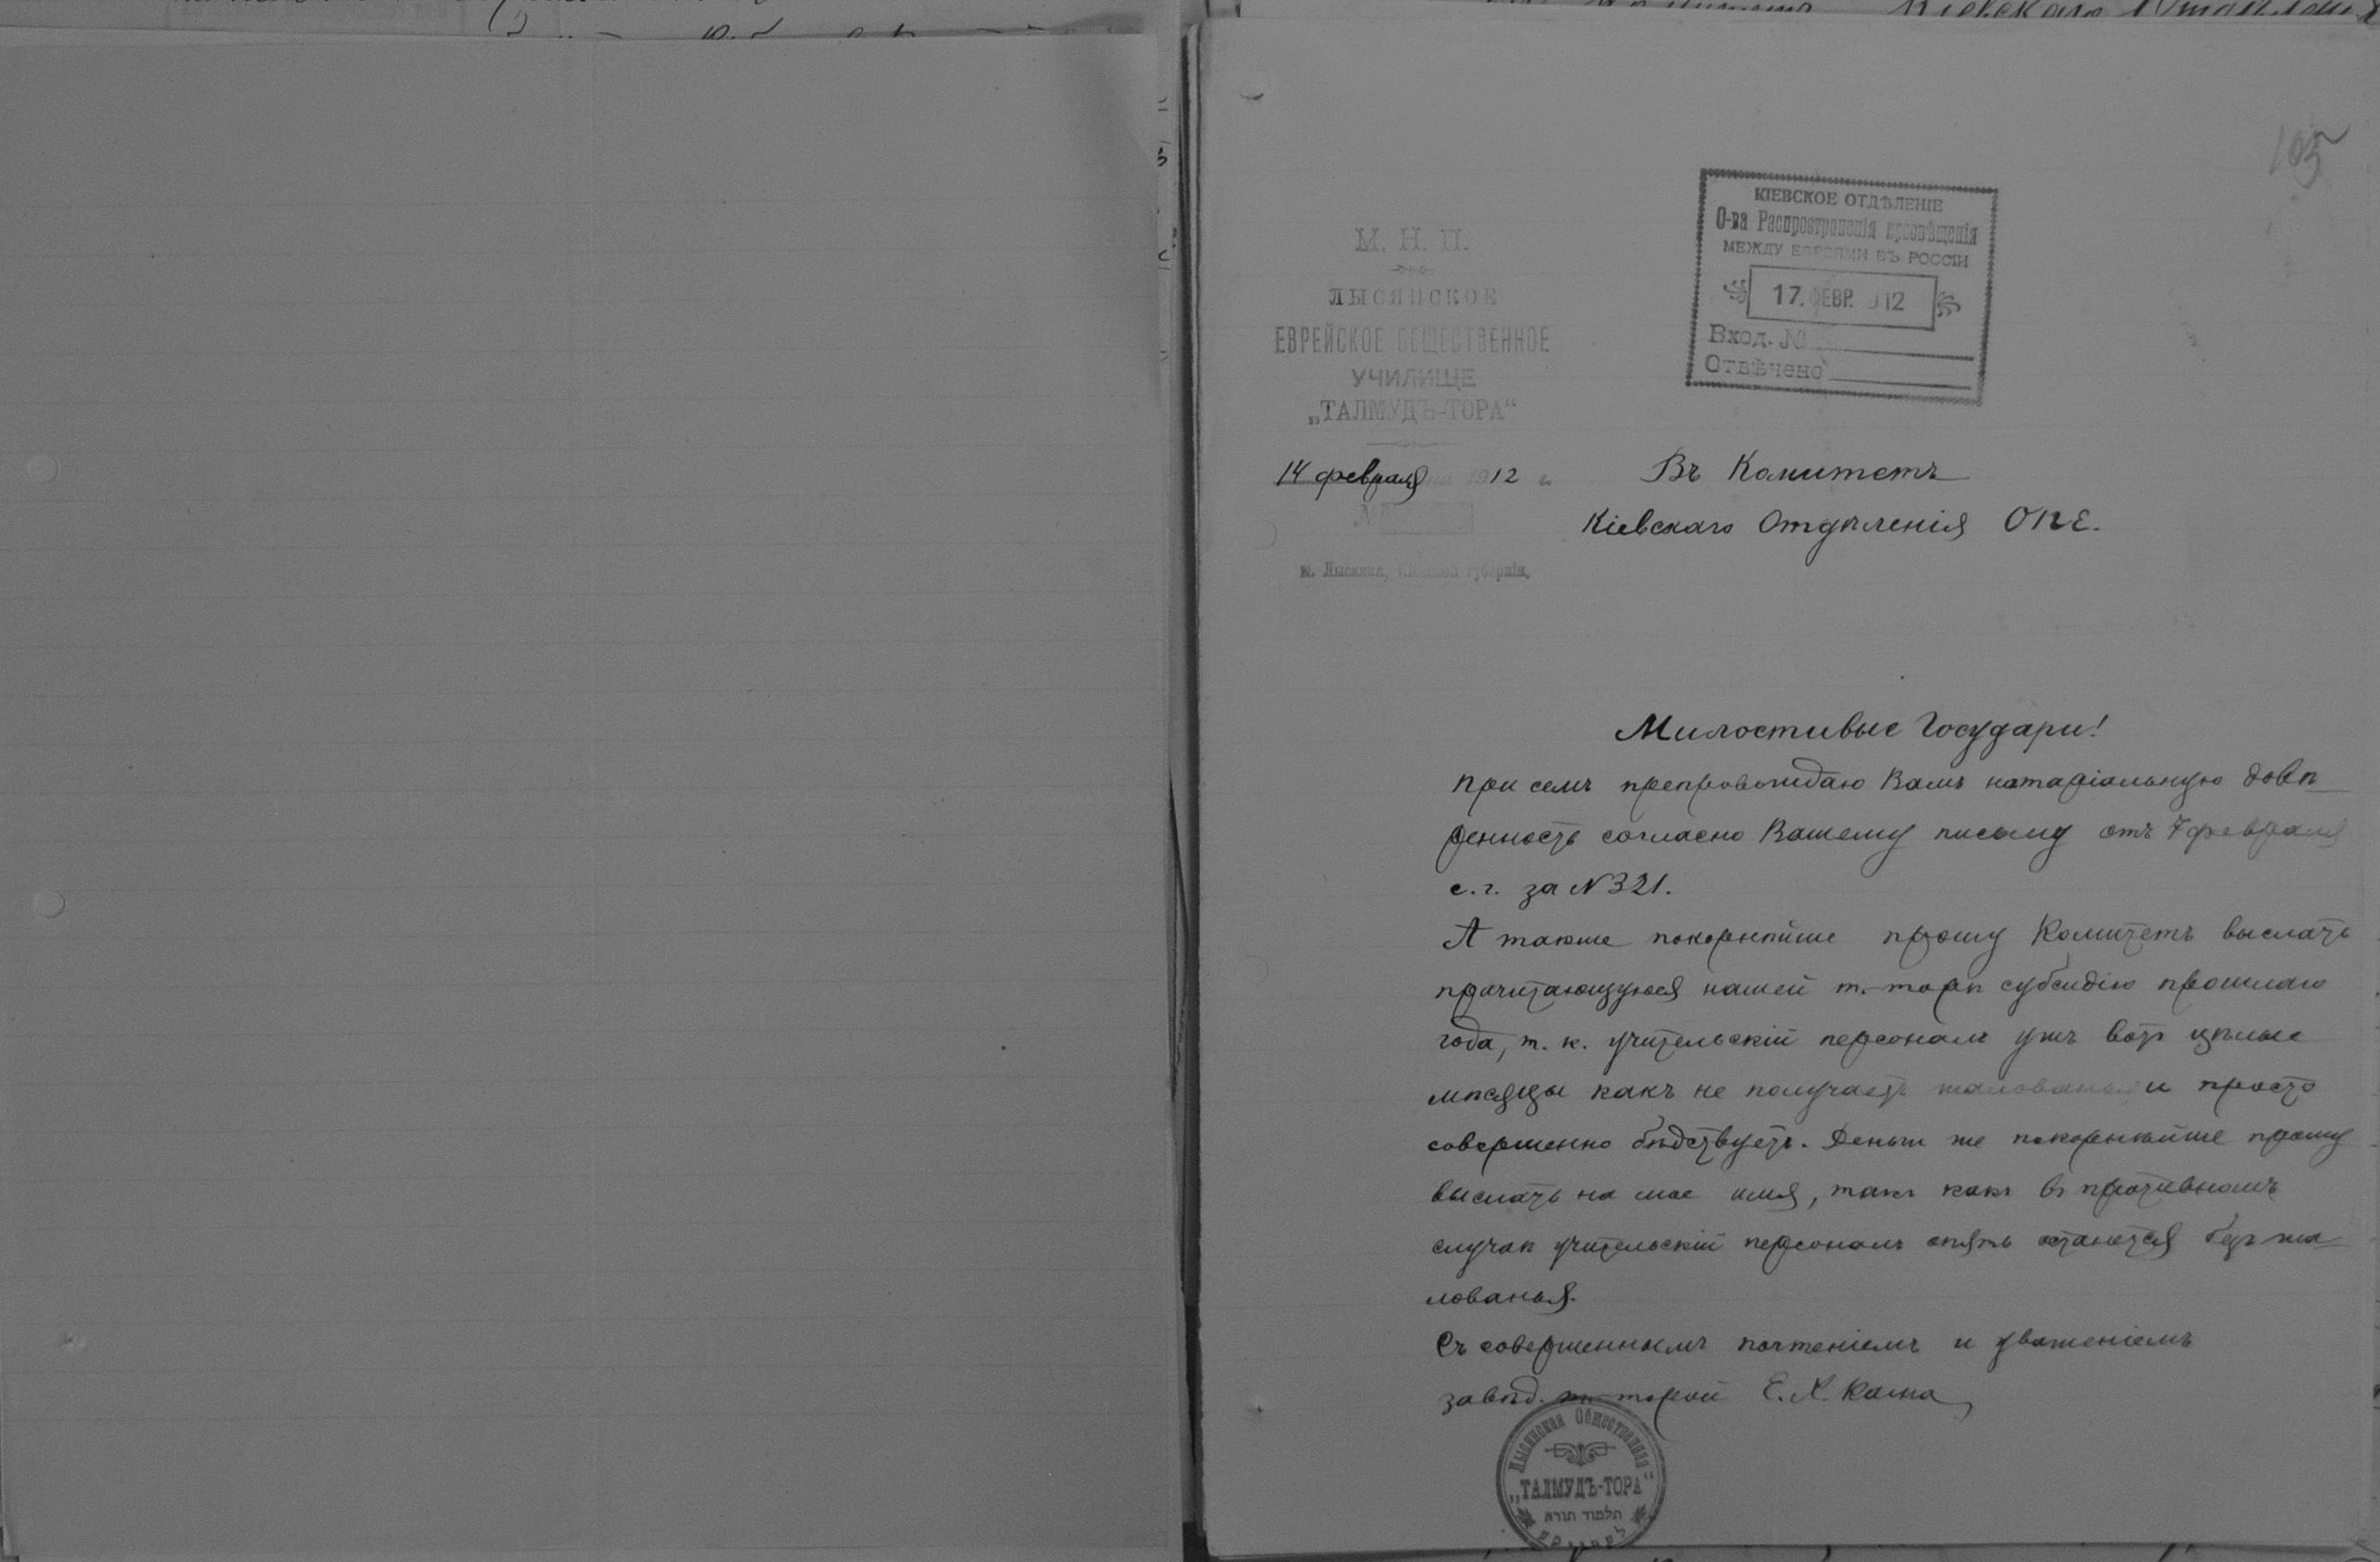 105
КІЕВСКОЕ ОТДѢЛЕНІЕ
О-ва Распространенія просвѣщенія
МЕЖДУ ЕВРЕЯМИ ВЪ РОССІИ
17. ФЕВР. 1912
Вход. №
Отвѣчено
М. Н. П.
ЛЫСЯНСКОЕ
ЕВРЕЙСКОЕ ОБЩЕСТВЕННОЕ
УЧИЛИЩЕ
„ТАЛМУДЪ-ТОРА“
14 февраля 1912 г.
№
м. Лысянка, Кіевской губерніи.
Въ Комитетъ
Кіевскаго Отдѣленія ОПЕ.
Милостивые Государи!
При семъ препровождаю Вамъ нотаріальную довѣ
ренность согласно Вашему письму отъ 7 февраля
с. г. за № 321.
А также покорнѣйше прошу Комитетъ выслать
причитающуюся нашей т.-торѣ субсидію прошлаго
года, т. к. учительскій персоналъ ужъ вотъ цѣлые
мѣсяцы какъ не получаетъ жалованья и просто
совершенно бѣдствуетъ. Деньги же покорнѣйше прошу
выслать на мое имя, такъ какъ въ противномъ
случаѣ учительскій персоналъ опять останется безъ жа
лованья.
Съ совершеннымъ почтеніемъ и уваженіемъ
завѣд. т.-торой Е. Х.
Лысянская Общественная
„ТАЛМУДЪ-ТОРА“
תלמוד תורה